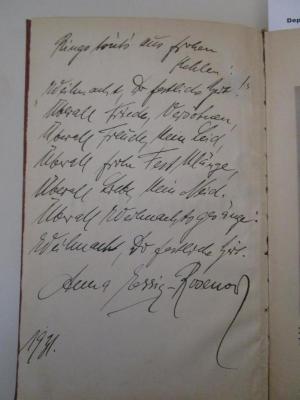 Rings tönt's aus frohen
Kehlen:
Weihnacht, Du festliche Zeit!
Überall Friede, Versöhnen,
Überall Freude, kein Leid,
Überall frohe Fest Klänge,
Überall Liebe, kein Neid.
Überall Weihnachtsgesänge:
Weihnacht, Du festliche Zeit.
Anna Essig-Rosenow
1931.
Dep